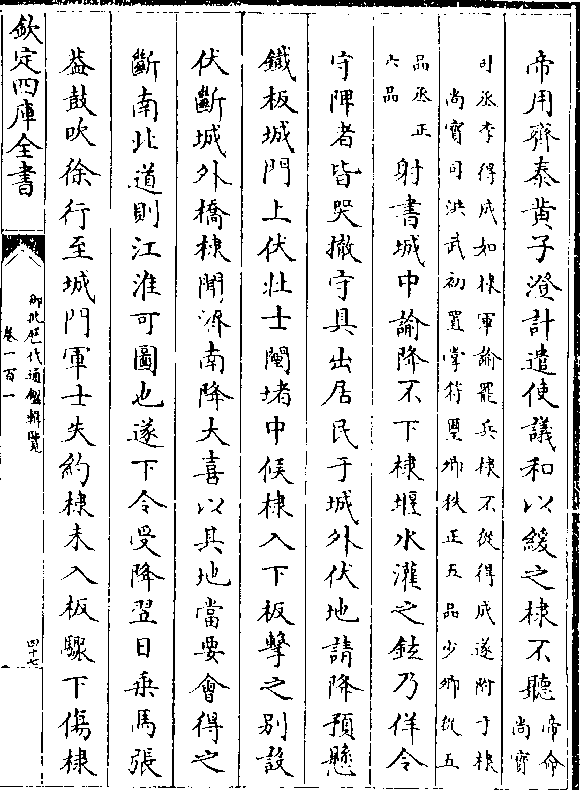 帝用齊泰黄子澄計遣使議和以緩之棣不聽帝命尚寳
司丞李得成如棣軍諭罷兵棣不從得成遂附于棣
尚寳司洪武初置掌符璽卿秩正五品少卿從五
品丞正六品射書城中諭降不下棣堰水灌之鉉乃佯令
守陴者皆哭撤守具出居民于城外伏地請降預懸
鐵板城門上伏壯士闉堵中候棣入下板擊之别設
伏斷城外橋棣聞濟南降大喜以其地當要會得之
斷南北道則江淮可圖也遂下令受降翌日乗馬張
葢鼓吹徐行至城門軍士失約棣未入板驟下傷棣
欽定四庫全書
御批歴代通鑑輯覽
卷一百一
四十七